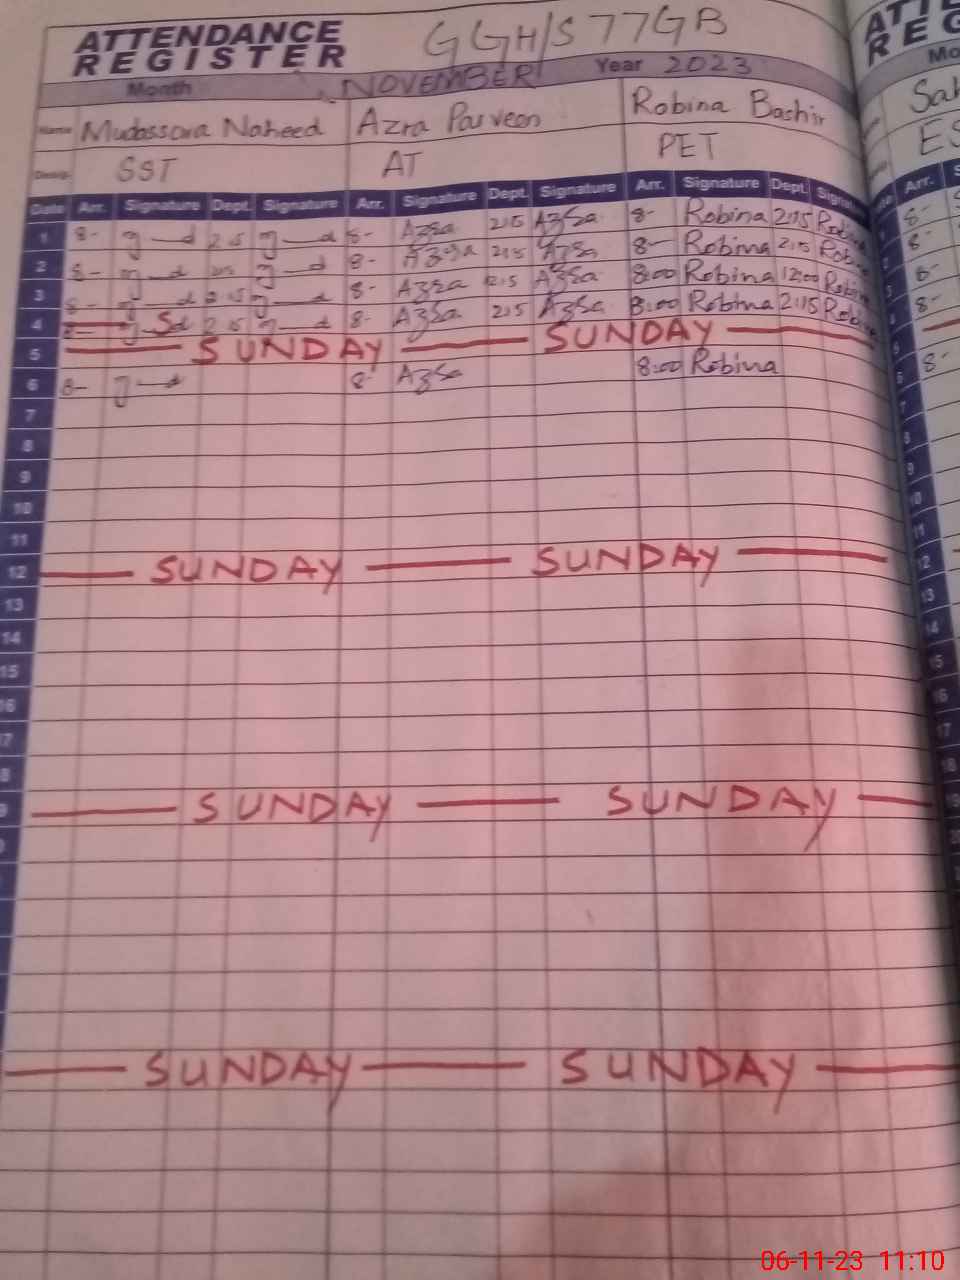 ATTENDANCE REGISTER GGH/S 77GB
Month NOVEMBER Year 2023
Name Mudassara Naheed Azra Parveen Robina Bashir
Desig. SST AT PET
Date Arr. Signature Dept. Signature Arr. Signature Dept. Signature Arr. Signature Dept. Signature
1 8- 215 8- Azra 215 Azra 8- Robina 2:15 Robina
2 8- 215 8- Azra 215 Azra 8- Robina 2:15 Robina
3 8- 215 8- Azra 215 Azra 8:00 Robina 12:00 Robina
4 8- 215 8- Azra 215 Azra 8:00 Robina 2:15 Robina
5 SUNDAY SUNDAY
6 8- 8- Azra 8:00 Robina
7
8
9
10
11
12 SUNDAY SUNDAY
13
14
15
16
SUNDAY SUNDAY
SUNDAY SUNDAY
Sah
ES
Arr.
8-
8-
8-
8-
8-
7
8
9
10
11
12
13
14
15
16
17
18
19
06-11-23 11:10